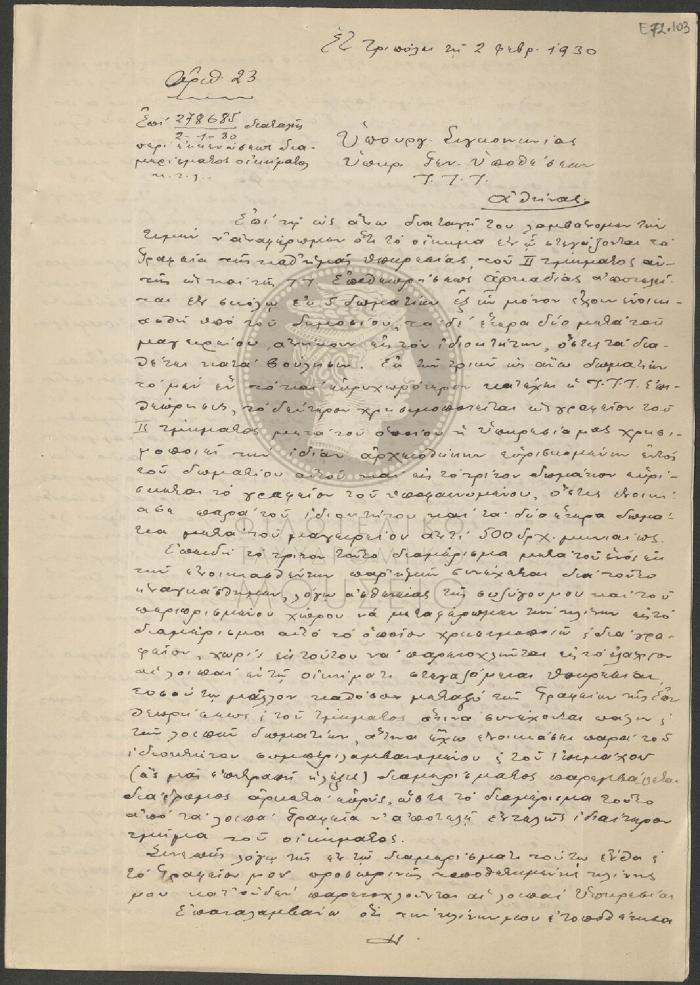 Ε72.103
Ἐν Τριπόλει τῇ 2 Φεβρ. 1930
Ἀριθ. 23
Ἐπὶ 278685 διαταγῆς
2-1-30
περὶ ἐκκενώσεως δια-
μερίσματος οἰκήματος
κ.τ.λ.
Ὑπουργ. Συγκοινωνίας
Ὑπηρ. Γεν. Ὑποθέσεων
Τ.Τ.Τ.
Ἀθήνας
Ἐπὶ τῇ ὡς ἄνω διαταγῇ του λαμβάνομεν τὴν
τιμὴν ν' ἀναφέρωμεν ὅτι τὸ οἴκημα ἐν ᾧ στεγάζονται τὰ
Γραφεῖα τῆς καθ' ἡμᾶς ὑπηρεσίας, τοῦ ΙΙ τμήματος αὐ-
τῆς ὡς καὶ τῆς Τ.Τ. Ἐπιθεωρήσεως Ἀρκαδίας ἀποτελεῖ-
ται ἐν συνόλῳ ἐκ 5 δωματίων ἐξ ὧν μόνον τρία ἐνοικι-
άσθη ὑπὸ τοῦ δημοσίου, τὰ δὲ ἕτερα δύο μετὰ τοῦ
μαγειρείου ἀνήκουν εἰς τὸν ἰδιοκτήτην, ὅστις τὰ δια-
θέτει κατὰ βούλησιν. Ἐκ τῶν τριῶν ὡς ἄνω δωματίων
τὸ μὲν ἓν τὸ καὶ εὐρυχωρότερον κατέχει ἡ Τ.Τ.Τ. Ἐπι-
θεώρησις, τὸ δεύτερον χρησιμοποιεῖται ὡς γραφεῖον τοῦ
ΙΙ τμήματος μετὰ τοῦ ὁποίου ἡ Ὑπηρεσία μας χρησι-
μοποιεῖ τὴν ἰδίαν ἀρχειοθήκην εὑρισκομένην ἐντὸς
τοῦ δωματίου αὐτοῦ καὶ εἰς τὸ τρίτον δωμάτιον εὑρί-
σκεται τὸ γραφεῖον τοῦ ὑποφαινομένου, ὅστις ἐνοικί-
ασε παρὰ τοῦ ἰδιοκτήτου καὶ τὰ δύο ἕτερα δωμά-
τια μετὰ τοῦ μαγειρείου ἀντὶ 500 δρχ. μηνιαίως.
Ἐπειδὴ τὸ τρίτον τοῦτο διαμέρισμα μετὰ τοῦ ἑνὸς ἐκ
τῶν ἐνοικιασθέντων παρ' ἡμῶν συνέχεται διὰ τοῦτο
ἠναγκάσθημεν, λόγῳ ἀσθενείας τῆς συζύγου μου καὶ τοῦ
περιωρισμένου χώρου νὰ μεταφέρωμεν τὴν κλίνην εἰς τὸ
διαμέρισμα αὐτὸ τὸ ὁποῖον χρησιμοποιῶ ἰδίᾳ γρα-
φεῖον, χωρὶς ἐκ τούτου νὰ παρενοχλῆται εἰς τὸ ἐλάχιστον
αἱ λοιπαὶ ἐν τῷ οἰκήματι στεγαζόμεναι ὑπηρεσίαι,
τοσούτῳ μᾶλλον καθόσον μεταξὺ τῶν Γραφείων τῆς Ἐπι-
θεωρήσεως & τοῦ τμήματος ἅτινα συνέχονται πάλιν &
τῶν λοιπῶν δωματίων, ἅτινα ἔχω ἐνοικιάσει παρὰ τοῦ
ἰδιοκτήτου συμπεριλαμβανομένου & τοῦ ἐπιμάχου
(ἂς μᾶς ἐπιτραπῇ ἡ λέξις) διαμερίσματος παρεμβάλλεται
διάδρομος ἀρκετὰ εὐρύς, ὥστε τὸ διαμέρισμα τοῦτο
ἀπὸ τὰ λοιπὰ Γραφεῖα ν' ἀποτελῇ ἐντελῶς ἰδιαίτερον
τμῆμα τοῦ οἰκήματος.
Συνεπῶς λόγῳ τῆς ἐν τῷ διαμερίσματι τούτῳ ἔνθα &
τὸ Γραφεῖον μου προσωρινῶς τοποθετημένης κλίνης
μου κατ' οὐδὲν παρενοχλοῦνται αἱ λοιπαὶ Ὑπηρεσίαι
Ἐπαναλαμβάνω ὅτι τὴν κλίνην μου ἐτοποθέτησα
ΦΙΛΟΤΕΛΙΚΟ
ΜΟΥΣΕΙΟ